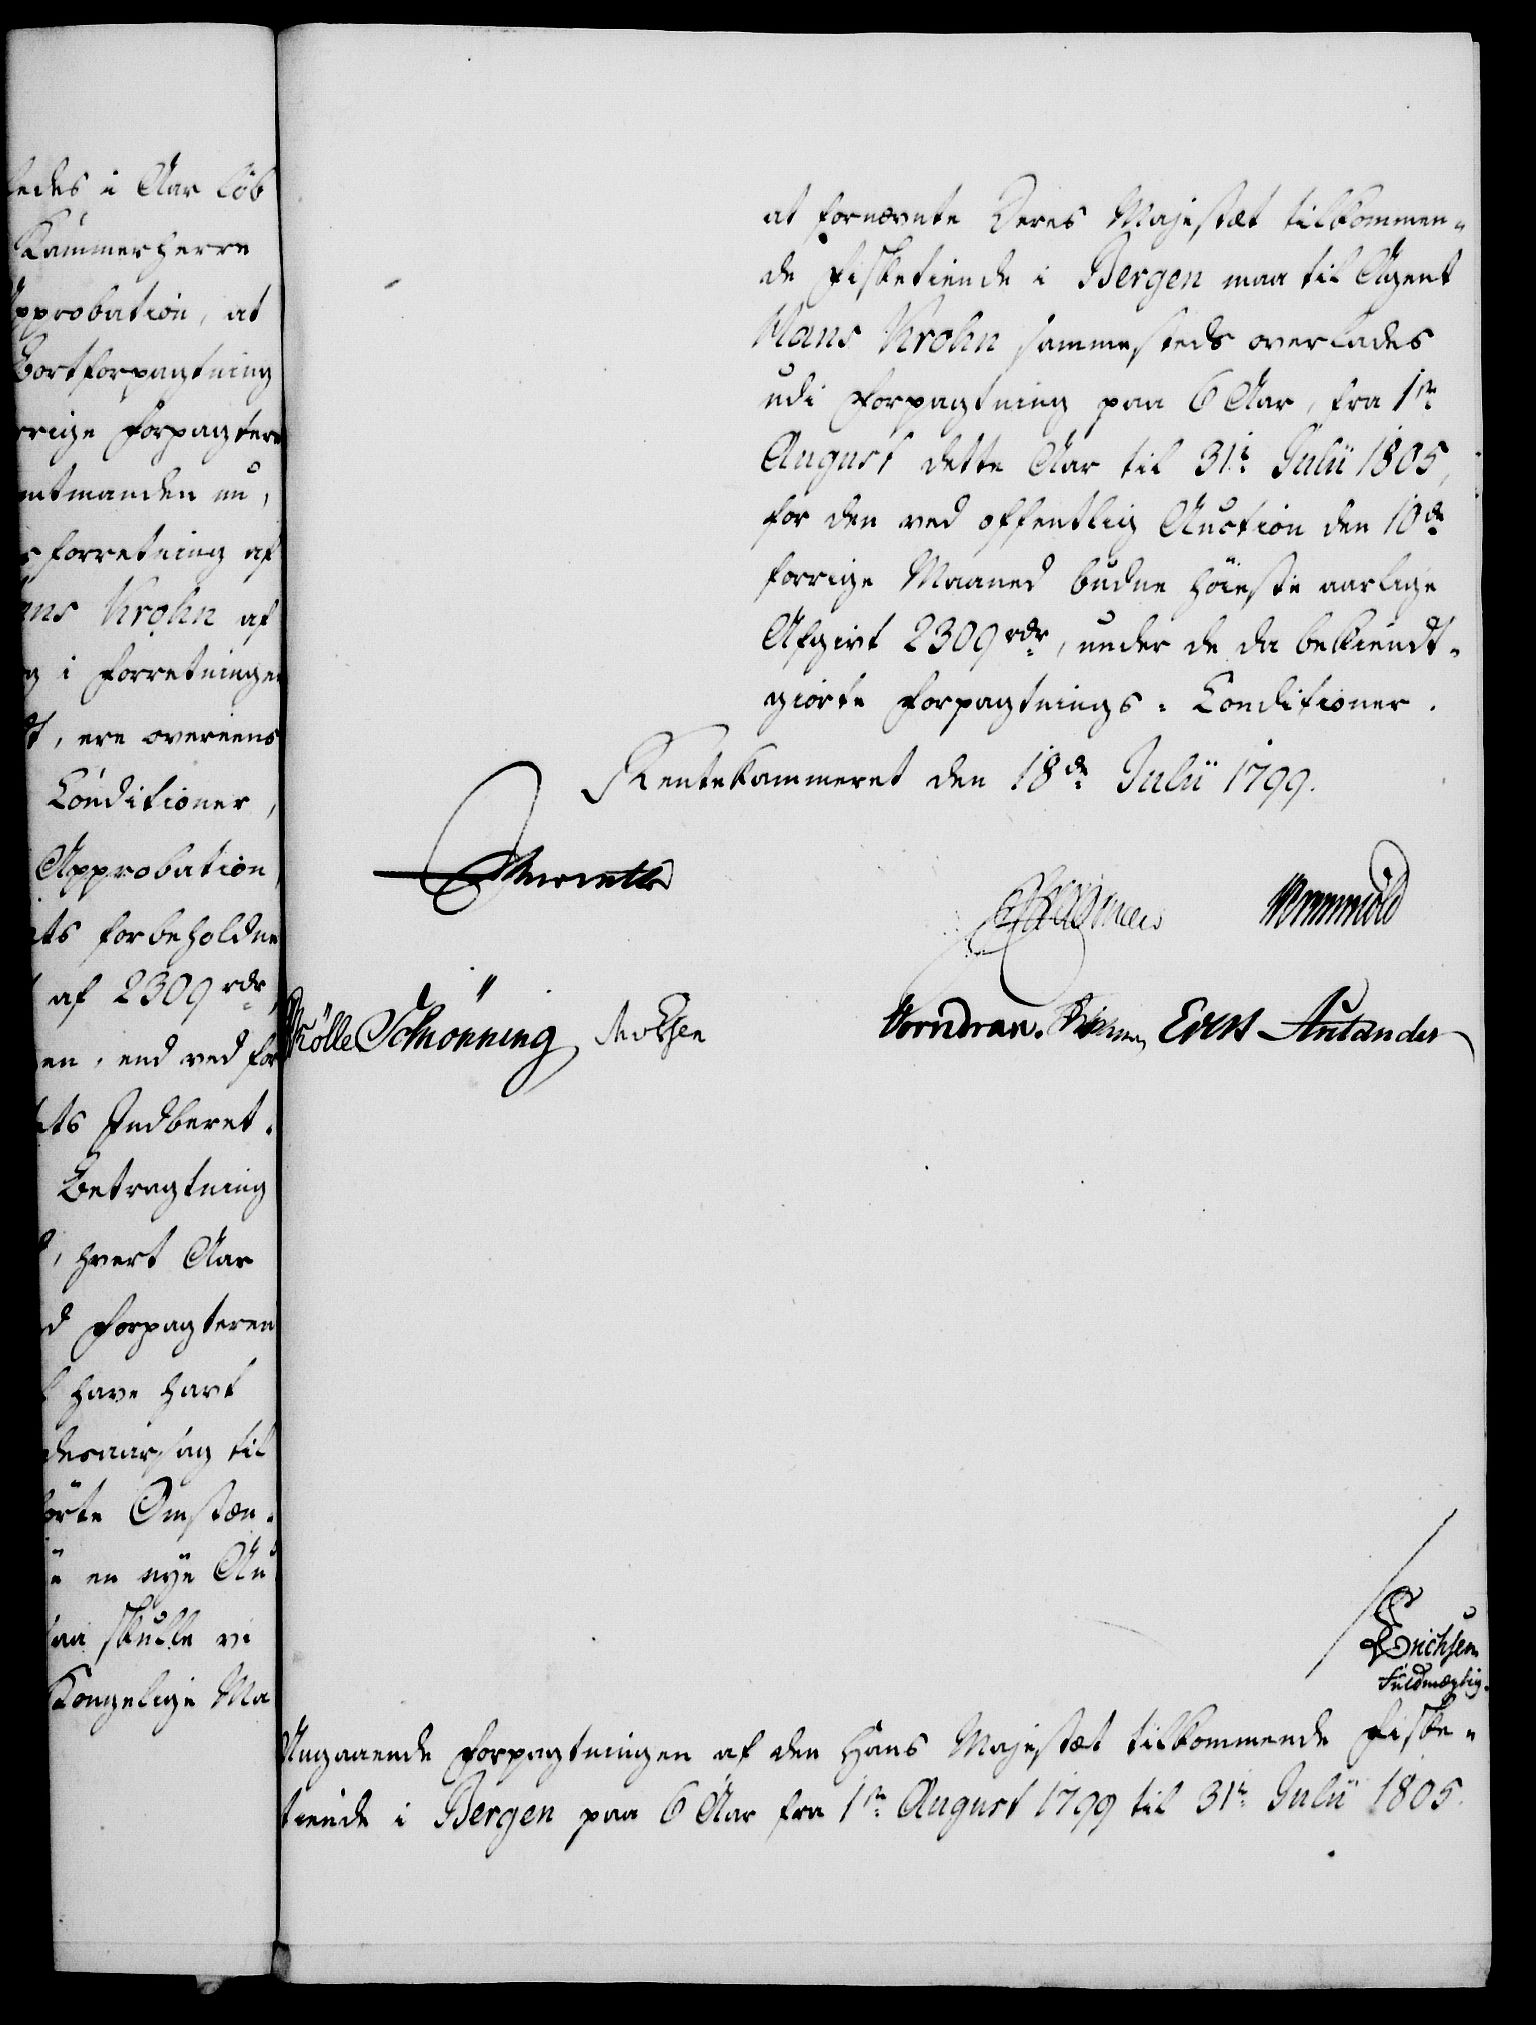 ledes i Aar løb
Kammerherre
Approbation, at
Bortforpagtning
rrige Forpagter
mtmanden nu,
s forretning af
ans Krohn af
g i Forretningen
t, ere overeens
Conditioner,
Approbation
ts forbeholdne
af 2309 rdr
en, end ved for
ts Indberet-
Betragtning
, hvert Aar
d Forpagteren
have havt
desaarsag til
førte Omstæn-
en nye Au
saa skulle vi
Kongelige Ma
at fornævnte Deres Majestæt tilkommen-
de Fisketiende i Bergen maa til Agent
Hans Krohn sammesteds overlades
udi Forpagtning paa 6 Aar, fra 1ste
August dette Aar til 31te Julii 1805,
for den ved offentlig Auction den 10de
forrige Maaned budne høieste aarlige
Afgivt 2309 rdr, under de da bekiendt-
giorte Forpagtnings-Conditioner.
Rentekammeret den 18de Julii 1799.
Wormskiold
Schönning
Vorndran. Evers Aulander
Erichsen
Fuldmægtig.
Angaaende Forpagtningen af den Hans Majestæt tilkommende Fiske-
tiende i Bergen paa 6 Aar fra 1ste August 1799 til 31te Julii 1805.